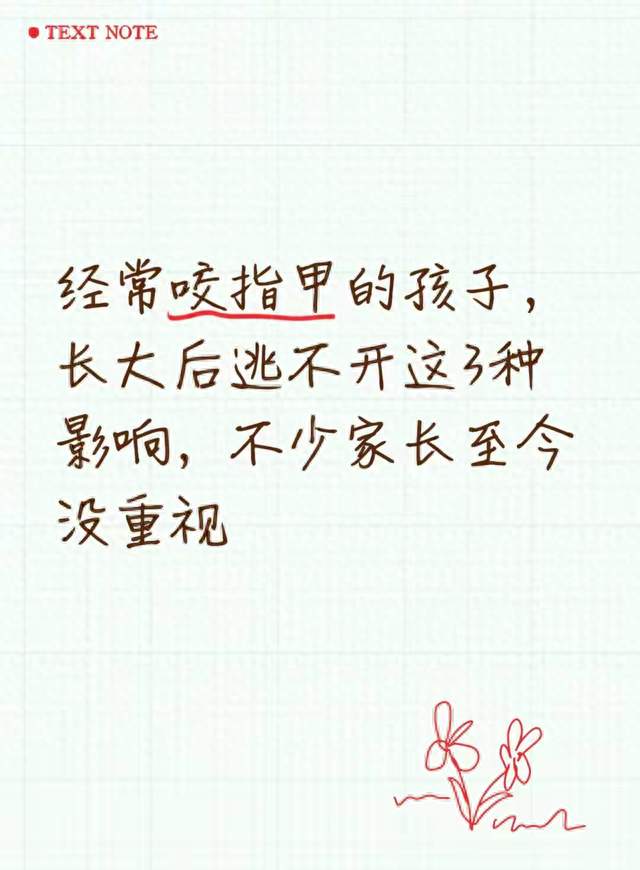 TEXT NOTE
经常咬指甲的孩子，
长大后逃不开这3种
影响，不少家长至今
没重视